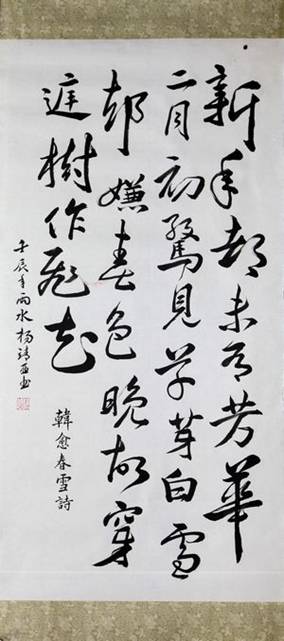 新年都未有芳華
二月初驚見草芽白雪
卻嫌春色晚故穿
庭樹作飛花
韓愈春雪詩
壬辰年雨水杨靖书